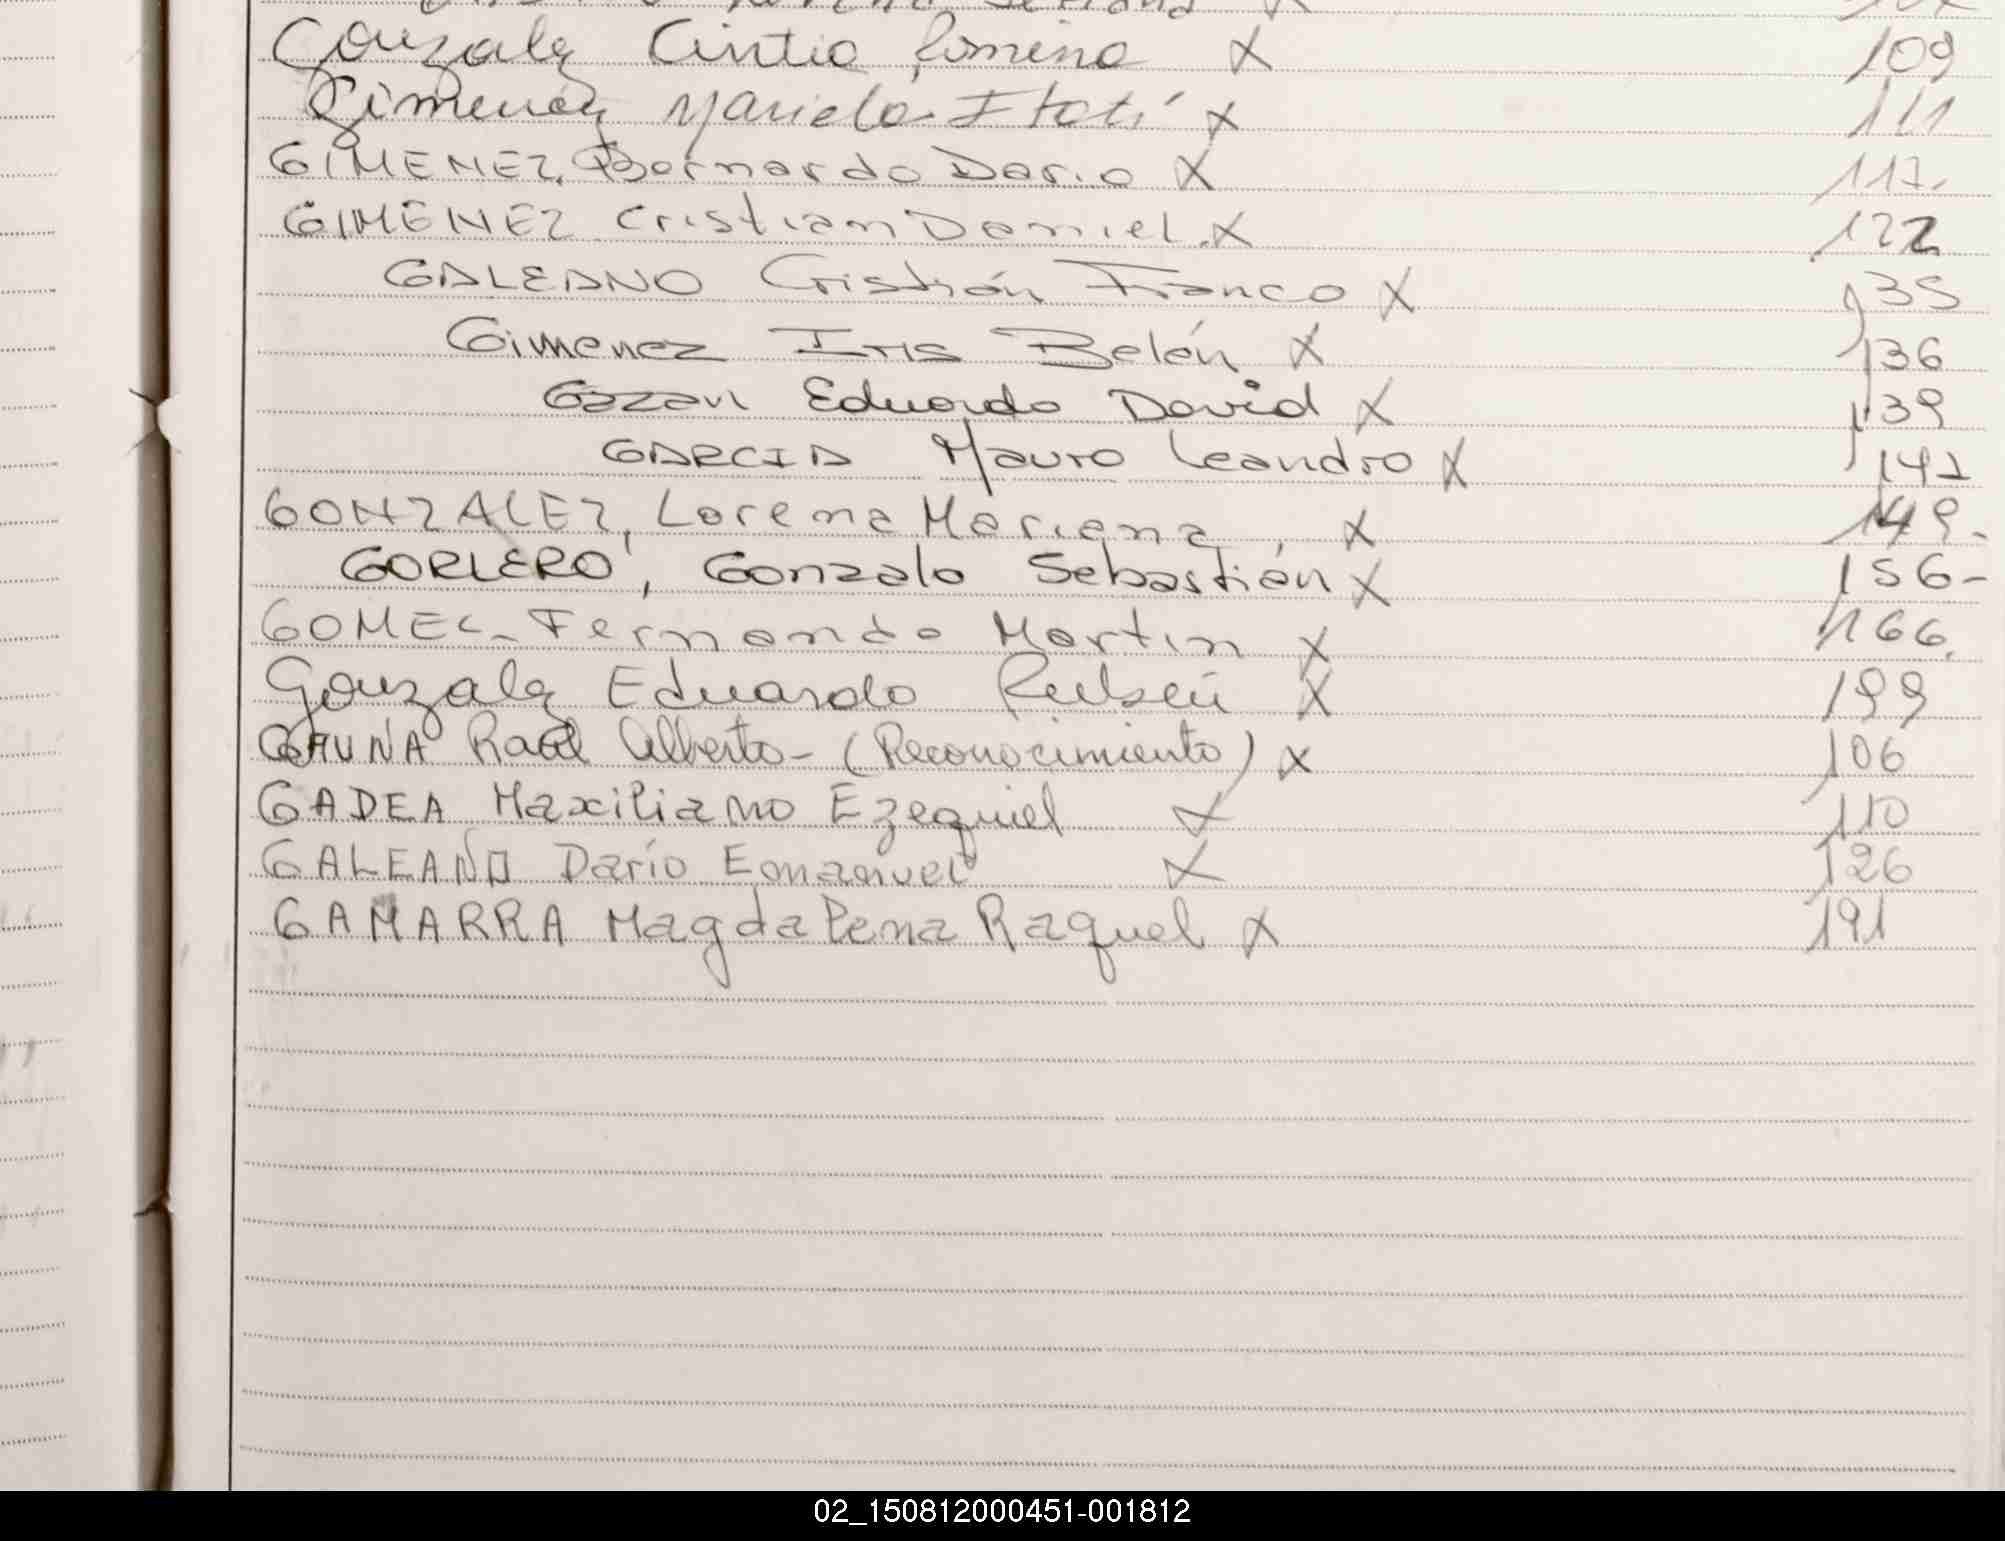 Gonzalez Cintia Romina X 109
Gimenez Mariela Itatí X 111
GIMENEZ, Bernardo Dario X 117.
GIMENEZ Cristian Daniel. X 122
GALEANO Cristián Franco X 135
Gimenez Iris Belén X 136
Gazan Eduardo David X 139
GARCIA Mauro Leandro X 141
GONZALEZ, Lorena Mariana, X 149.-
GORLERO, Gonzalo Sebastián X 156-
GOMEZ- Fernando Martin X 166.
Gonzalez Eduardo Rubén X 199
GAUNA Raúl Alberto- (Reconocimiento) X 106
GADEA Maxiliano Ezequiel X 110
GALEANO Darío Emanuel X 126
GAMARRA Magdalena Raquel X 191
02_150812000451-001812